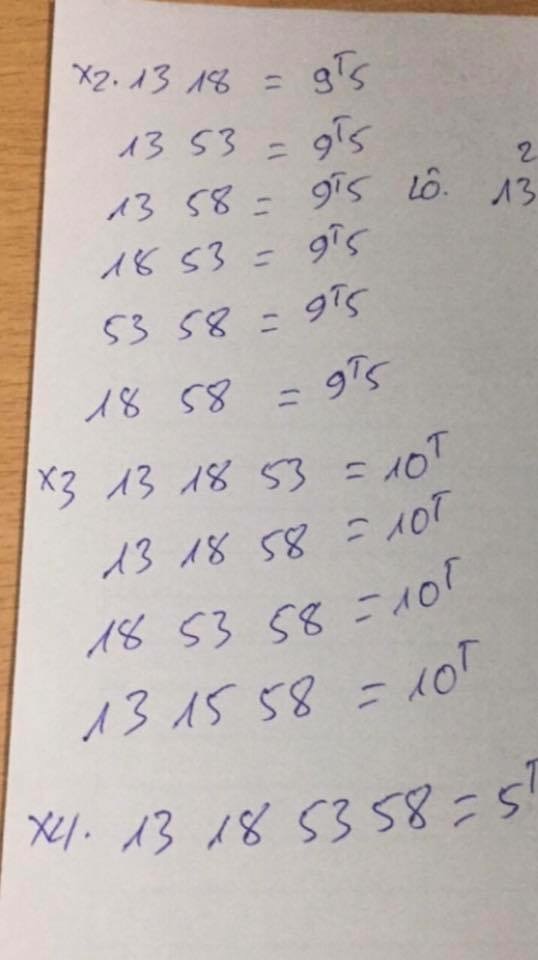 x2. 13 18 = 9T5
13 53 = 9T5
13 58 = 9T5 Lô. 13 2
18 53 = 9T5
53 58 = 9T5
18 58 = 9T5
x3 13 18 53 = 10T
13 18 58 = 10T
18 53 58 = 10T
13 15 58 = 10T
x4. 13 18 53 58 = 5T